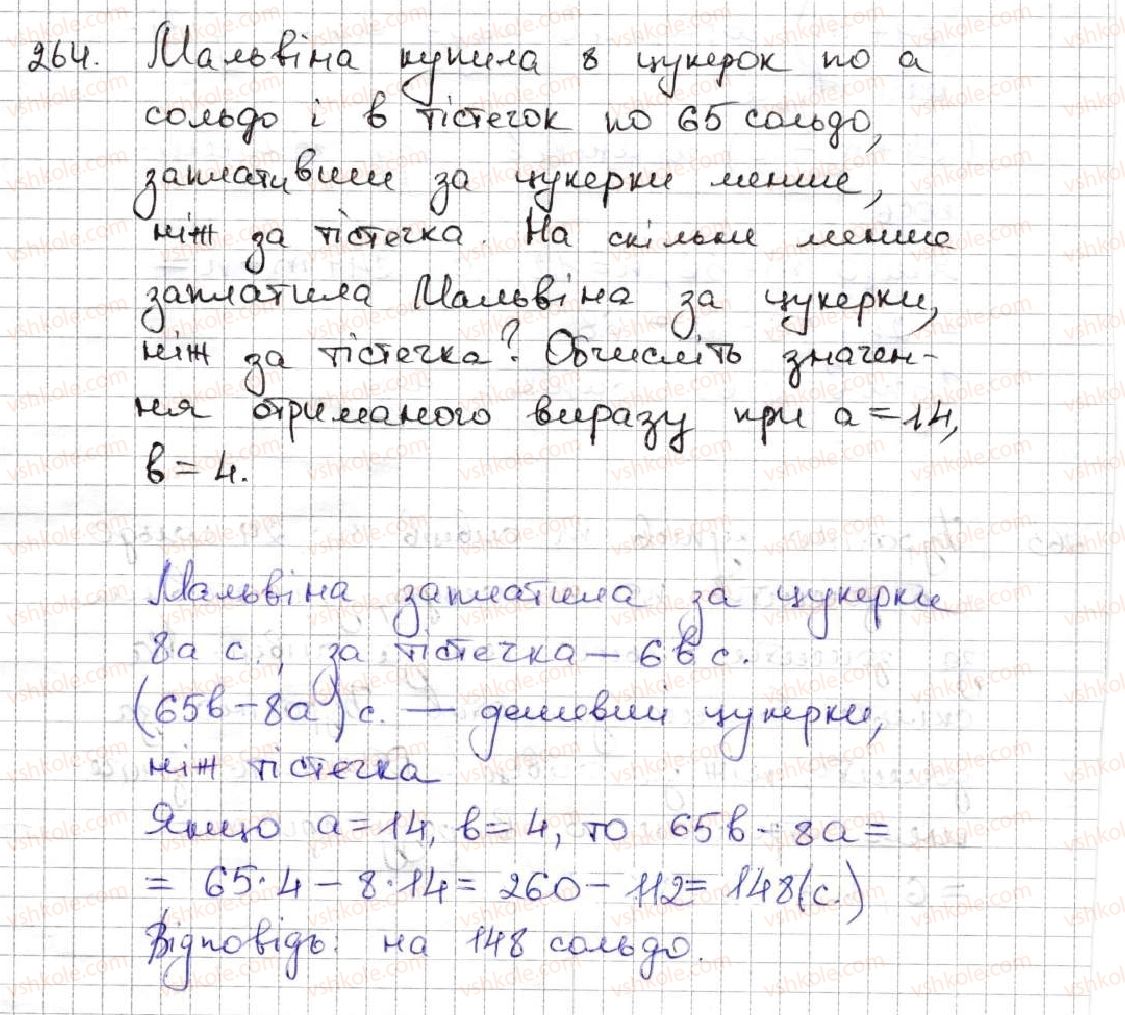 264. Мальвіна купила 8 цукерок по a
сольдо і в тістечок по 65 сольдо,
заплативши за цукерки менше,
ніж за тістечка. На скільки менше
заплатила Мальвіна за цукерки,
ніж за тістечка? Обчисліть значен-
ня отриманого виразу при a=14,
в=4.
Мальвіна заплатила за цукерки
8a с., за тістечка — 6в с.
(65в-8a) с. — дешевші цукерки,
ніж тістечка
Якщо a=14, в=4, то 65в-8a=
= 65·4-8·14=260-112=148(с.)
Відповідь: на 148 сольдо.